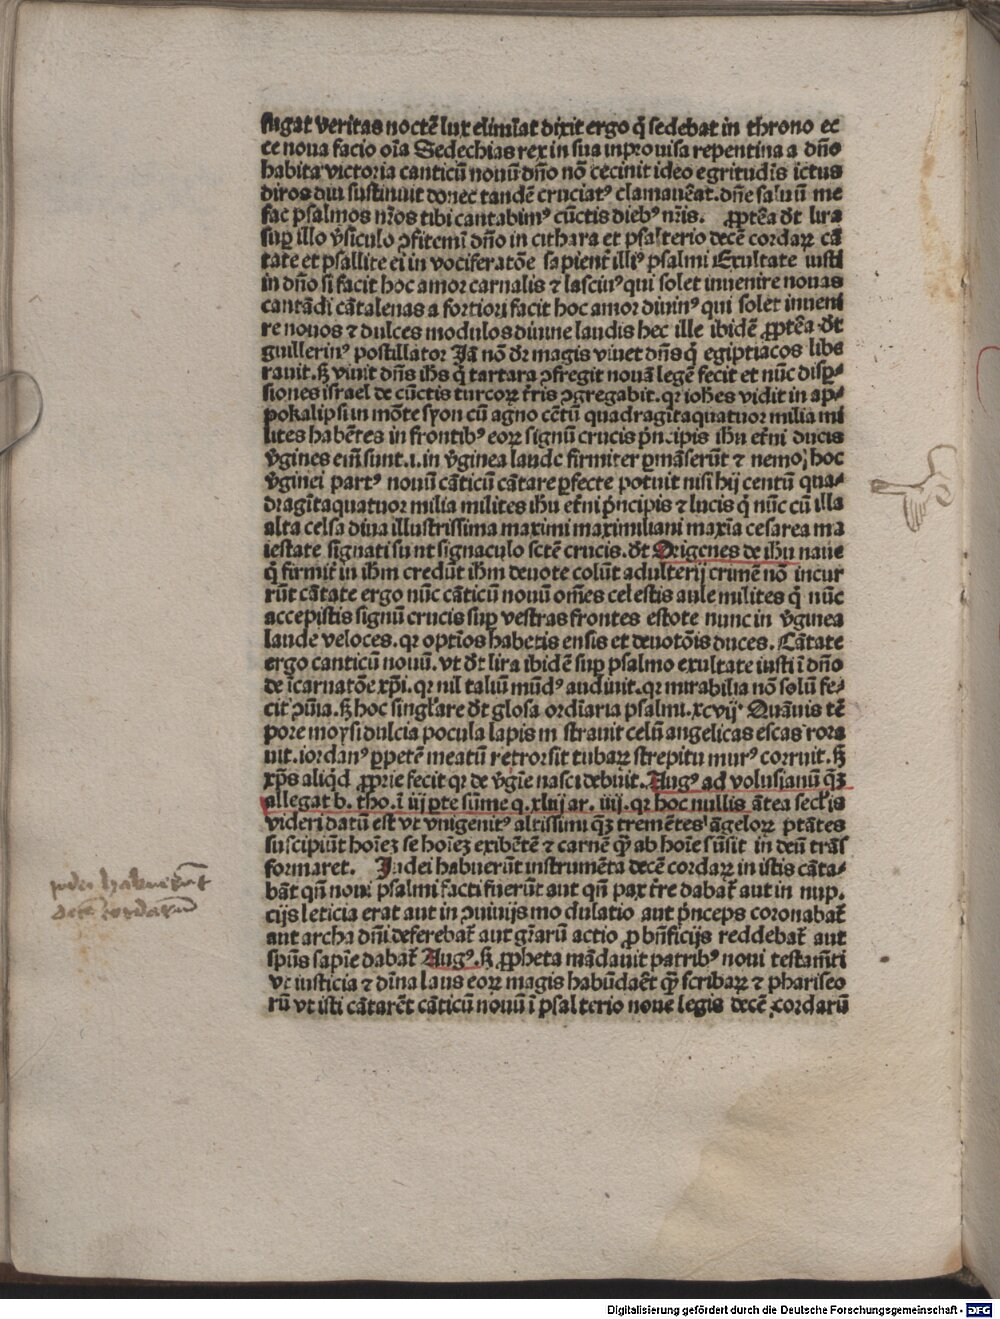 fugat veritas noctē lux elimīat dixit ergo q̄ sedebat in throno ec
ce noua facio oīa Sedechias rex in sua inprouisa repentina a dn̄o
habita victoria canticū nouū dn̄o nō cecinit ideo egritudīs ictus
diros diu sustinuit donec tandē cruciatꝰ clamauēat. dn̄e saluū me
fac psalmos nr̄os tibi cantabimꝰ cūctis diebꝰ nr̄is. ꝓptēa dt̄ lira
suꝑ illo v̄siculo ↄfitemī dn̄o in cithara et psalterio decē cordaꝝ cā
tate et psallite ei in vociferatōe sapienť illiꝰ psalmi Exultate iusti
in dn̄o si facit hoc amor carnalis ⁊ lasciuꝰ qui solet inuenire nouas
cantādi cātalenas a fortiori facit hoc amor diuinꝰ qui solet inueni
re nouos ⁊ dulces modulos diuine laudis hec ille ibidē ꝓptēa dt̄
guillerinꝰ postillator Jā nō dr̄ magis viuet dn̄s q̄ egiptiacos libe
rauit. sꝫ viuit dn̄s ihs q̄ tartara ↄfregit nouā legē fecit et nūc disꝑ⸗
siones israel de cūctis turcoꝝ ťris ↄgregabit. qꝛ iohēs vidit in ap⸗
pokalipsi in mōte syon cū agno cētū quadragītaquatuor milia mi
lites habētes in frontibꝰ eoꝝ signū crucis pn̄cipis ihu eťni ducis
v̄gines eīm sunt .i. in v̄ginea laude firmiter ꝑmāserūt ⁊ nemo; hoc
v̄ginei partꝰ nouū cāticū cātare ꝑfecte potuit nisi hij centū qua⸗
dragītaquatuor milia milites ihu eťni pn̄cipis ⁊ lucis q̄ nūc cū illa
alta celsa diua illustrissima maximi maximiliani maxīa cesarea ma
iestate signati sunt signaculo sctē crucis. dt̄ Origenes de ihu naue
q̄ firmiť in ihm credūt ihm deuote colūt adulterij crimē nō incur
rūt cātate ergo nūc cāticū nouū om̄es celestis aule milites q̄ nūc
accepistis signū crucis suꝑ vestras frontes estote nunc in v̄ginea
laude veloces. qꝛ optīos habetis ensis et deuotōis duces. Cātate
ergo canticū nouū. vt dt̄ lira ibidē suꝑ psalmo exultate iusti ī dn̄o
de īcarnatōe xp̄i. qꝛ nil taliū mūdꝰ audiuit. qꝛ mirabilia nō solū fe⸗
cit ↄuīa. sꝫ hoc singľare dt̄ glosa ordīaria psalmi .xcvij. Quāuis tē
pore moysi dulcia pocula lapis in strauit celū angelicas escas rora
uit. iordanꝰ ꝑpetē meatū retrorsit tubaꝝ strepitu murꝰ corruit. sꝫ
xp̄s aliqd̄ ꝓprie fecit qꝛ de v̄gīe nasci debuit. Augꝰ ad volusianū qꝫ
allegat b. tho. ī iij ꝑte sūme q. xliij ar. iiij. qꝛ hoc nullis ātea secľis
videri datū est vt vnigenitꝰ altissimi qꝫ tremētes āgeloꝝ ptātes
suscipiūt hoīeꝫ se hoīeꝫ exibētē ⁊ carnē qꝫ ab hoīe sūsit in deū trās
formaret. Judei habuerūt instrumēta decē cordaꝝ in istis cāta⸗
bāt qn̄ noui psalmi facti fuerūt aut qn̄ pax ťre dabať aut in nup.
cijs leticia erat aut in ↄuiuijs modulatio aut pn̄ceps coronabať
aut archa dn̄i deferebať aut gr̄arū actio ꝓ bn̄ficijs reddebať aut
spūs sapīe dabať Augꝰ. sꝫ ꝓpheta mādauit patribꝰ noui testam̄ti
vt iusticia ⁊ dīna laus eoꝝ magis habūdaēt qꝫ scribaꝝ ⁊ phariseo
rū vt isti cātarēt cāticū nouū ī psalterio noue legis decē cordarū
judei habuerunt
decē cordarum
Digitalisierung gefördert durch die Deutsche Forschungsgemeinschaft - DFG